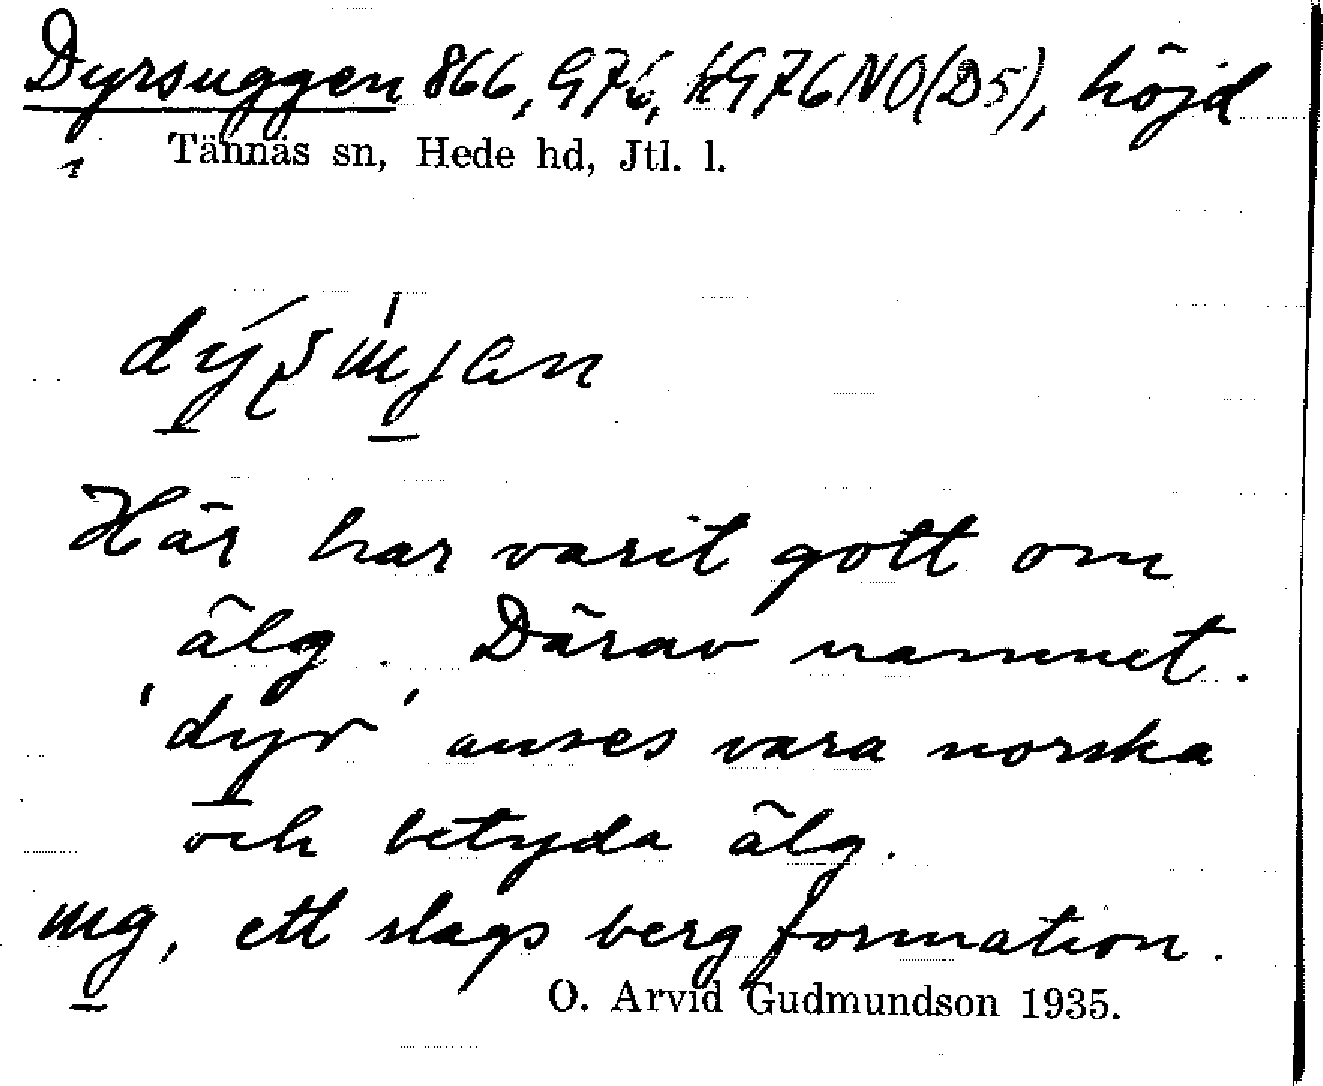 Dyrsuggen 866, G76, kG76NO(D5), höjd
Tännäs sn, Hede hd, Jtl. l.
Här har varit gott om
älg. Därav namnet.
'dyr' anses vara norska
och betyda älg.
ett slags bergformation.
O. Arvid Gudmundson 1935.